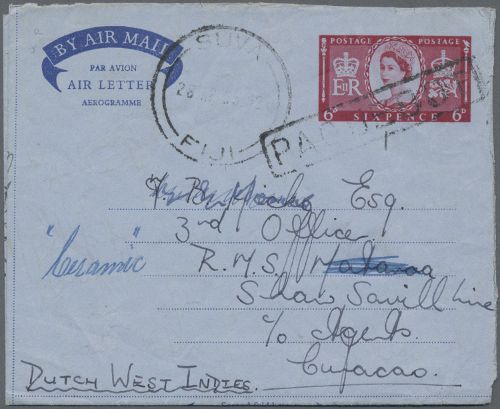 BY AIR MAIL
PAR AVION
AIR LETTER
AEROGRAMME
SUVA
FIJI
POSTAGE POSTAGE
E II R
6D SIXPENCE 6D
Esq.
3rd Officer
"Ceramic" R.M.S. Mataroa
Shaw Savill Line
c/o Agents
Curacao.
DUTCH WEST INDIES.